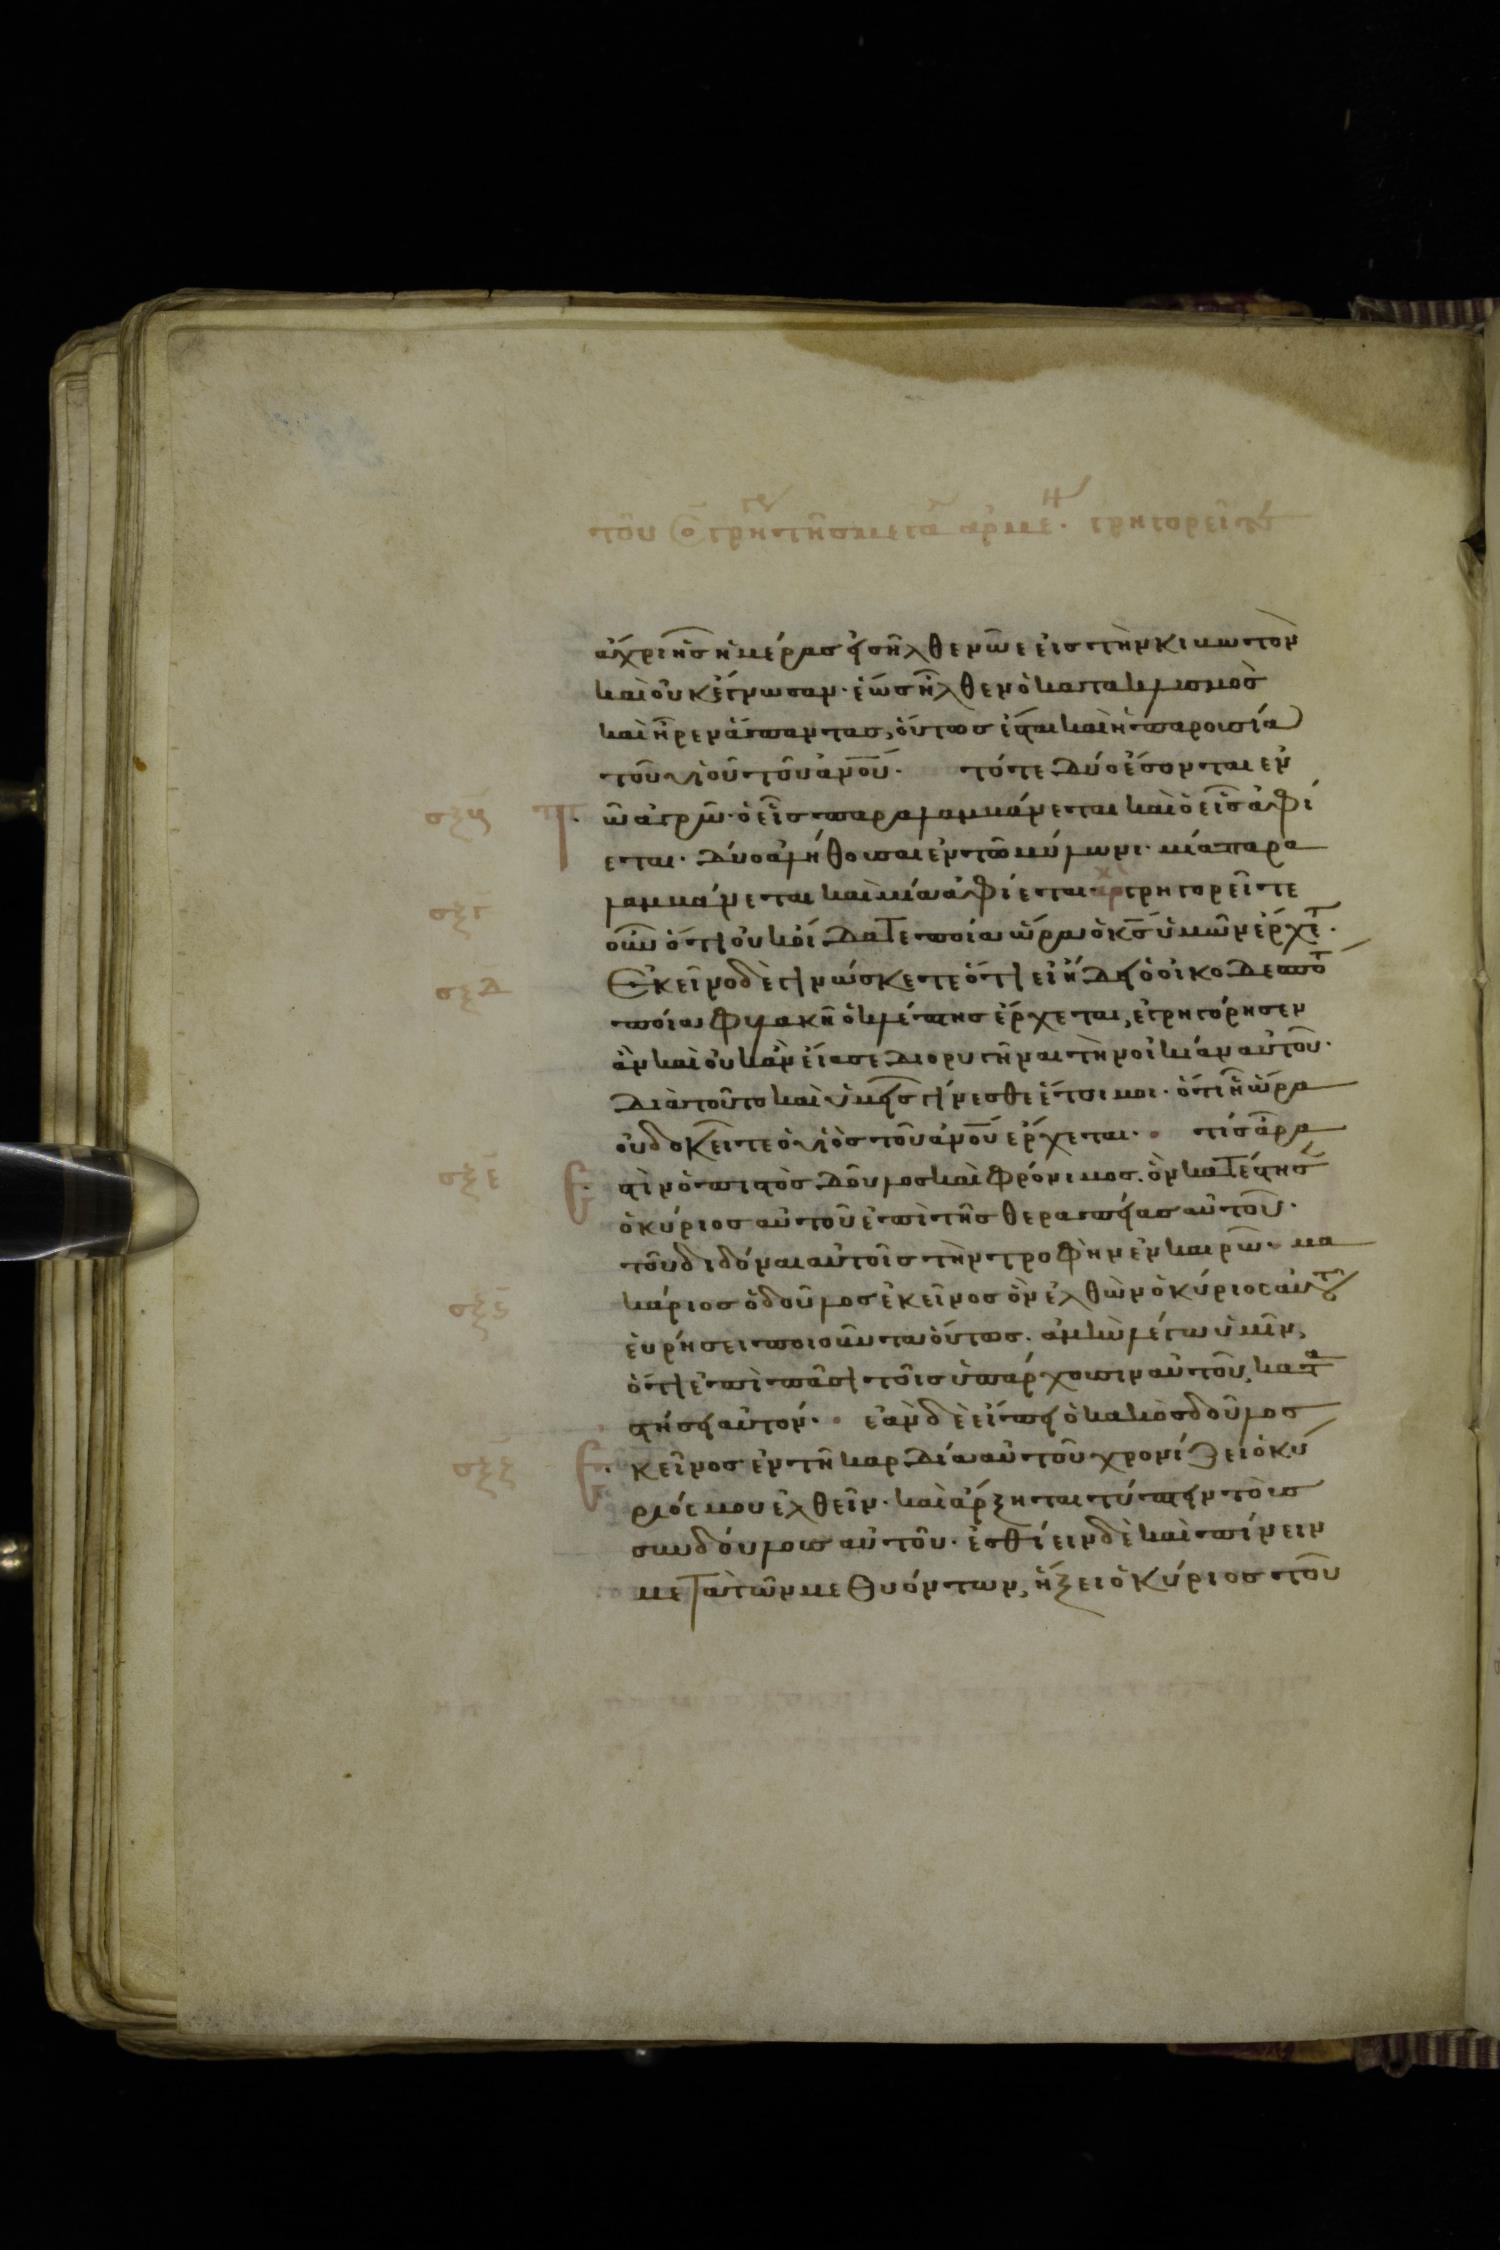 ἄχρι ἧς ἡμέρας εἰσῆλθεν νῶε εἰς τὴν κιβωτὸν
καὶ οὐκ ἔγνωσαν· ἕως ἦλθεν ὁ κατακλυσμὸς
καὶ ἦρεν ἅπαντας, οὕτως ἔσται καὶ ἡ παρουσία
τοῦ υἱοῦ τοῦ ἀνου. τότε δύο ἔσονται ἐν
τῶ ἀγρῶ· ὁ εἷς παραλαμβάνεται καὶ ὁ εἷς ἀφί
εται· δύο ἀλήθουσαι ἐν τῶ μύλωνι· μία παρα
λαμβάνεται καὶ μία ἀφίεται· ἀρχ γρηγορεῖτε
οὖν ὅτι οὐκ οἴδατε ποία ὥρα ὁ κς ὑμῶν ἔρχετ.
Ἐκεῖνο δὲ γινώσκετε ὅτι εἰ ἤδει ὁ οἰκοδεσπότ
ποία φυλακῆ ὁ κλέπτης ἔρχεται, ἐγρηγόρησεν
ἂν καὶ οὐκ ἂν εἴασε διορυγῆναι τὴν οἰκίαν αὐτοῦ·
Διὰ τοῦτο καὶ ὑμεῖς γίνεσθε ἕτοιμοι· ὅτι ἧ ὥρα
οὐ δοκεῖτε ὁ υἱὸς τοῦ ἀνου ἔρχεται· τίς ἄρα
σξε ἐστὶν ὁ πιστὸς δοῦλος καὶ φρόνιμος. ὃν κατέστησ
ὁ κύριος αὐτοῦ ἐπὶ τῆς θεραπείας αὐτοῦ·
τοῦ διδόναι αὐτοῖς τὴν τροφὴν ἐν καιρῶ· μα
κάριος ὁ δοῦλος ἐκεῖνος ὃν ἐλθὼν ὁ κύριος αὐτοῦ
εὑρήσει ποιοῦντα οὕτως. ἀμὴν λέγω ὑμῖν,
ὅτι ἐπὶ πᾶσι τοῖς ὑπάρχουσιν αὐτοῦ, κατα
στήσει αὐτόν· ἐὰν δὲ εἴπη ὁ κακὸς δοῦλος
σξζ κεῖνος ἐν τῆ καρδία αὐτοῦ χρονίζει ὁ κύ
ριός μου ἐλθεῖν· καὶ ἄρξηται τύπτειν τοὺς
συνδούλους αὐτοῦ· ἐσθίειν δὲ καὶ πίνειν
μετὰ τῶν μεθυόντων, ἥξει ὁ κύριος τοῦ